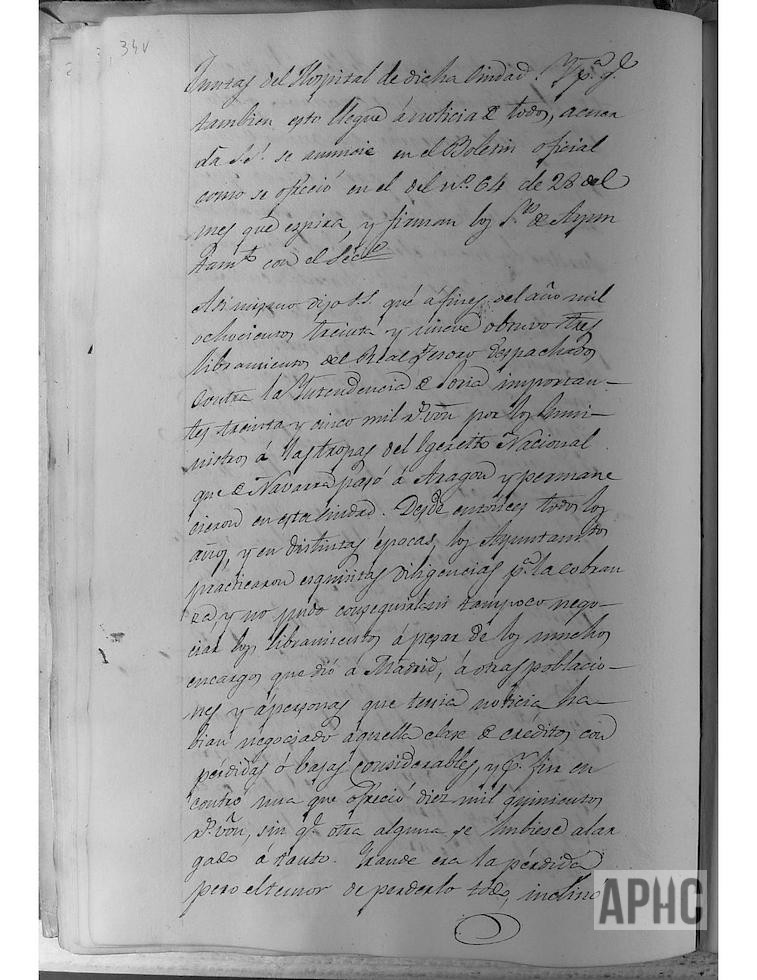 34v
Juntas del Hospital de dicha Ciudad. Y pª qe
tambien esto llegue á noticia de todos, acuer
da S.Sª. se anuncie en el Boletin oficial
como se ofreció en el del nº. 64 de 28 del
mes que espira, y firman los Sres de Ayun
tamto con el Srio
Asi mismo dijo S.S. que á fines del año mil
ochocientos treinta y nueve obtuvo tres
libramientos del Real Tesoro despachados
contra la Yntendencia de Soria importan-
tes treinta y cinco mil rs. von por los sumi-
nistros á las tropas del Egercito Nacional
que de Navarra pasó á Aragon y permane
cieron en esta Ciudad. Desde entónces todos los
años, y en distintas épocas, los Ayuntamtos
practicaron esquisitas diligencias pª la cobran
za y no pudo conseguirla ni tampoco nego-
ciar los libramientos á pesar de los muchos
encargos que dió á Madrid, á otras poblacio-
nes y á personas que tenia noticia ha-
bian negociado aquella clase de creditos con
pérdidas ó bajas considerables, y pr. fin en
contró una que ofreció diez mil quinientos
rs. von, sin qe. otra alguna se hubiese alar
gado á tanto. Grande era la pérdida
pero el temor de perderlo todo, inclinó
APHC